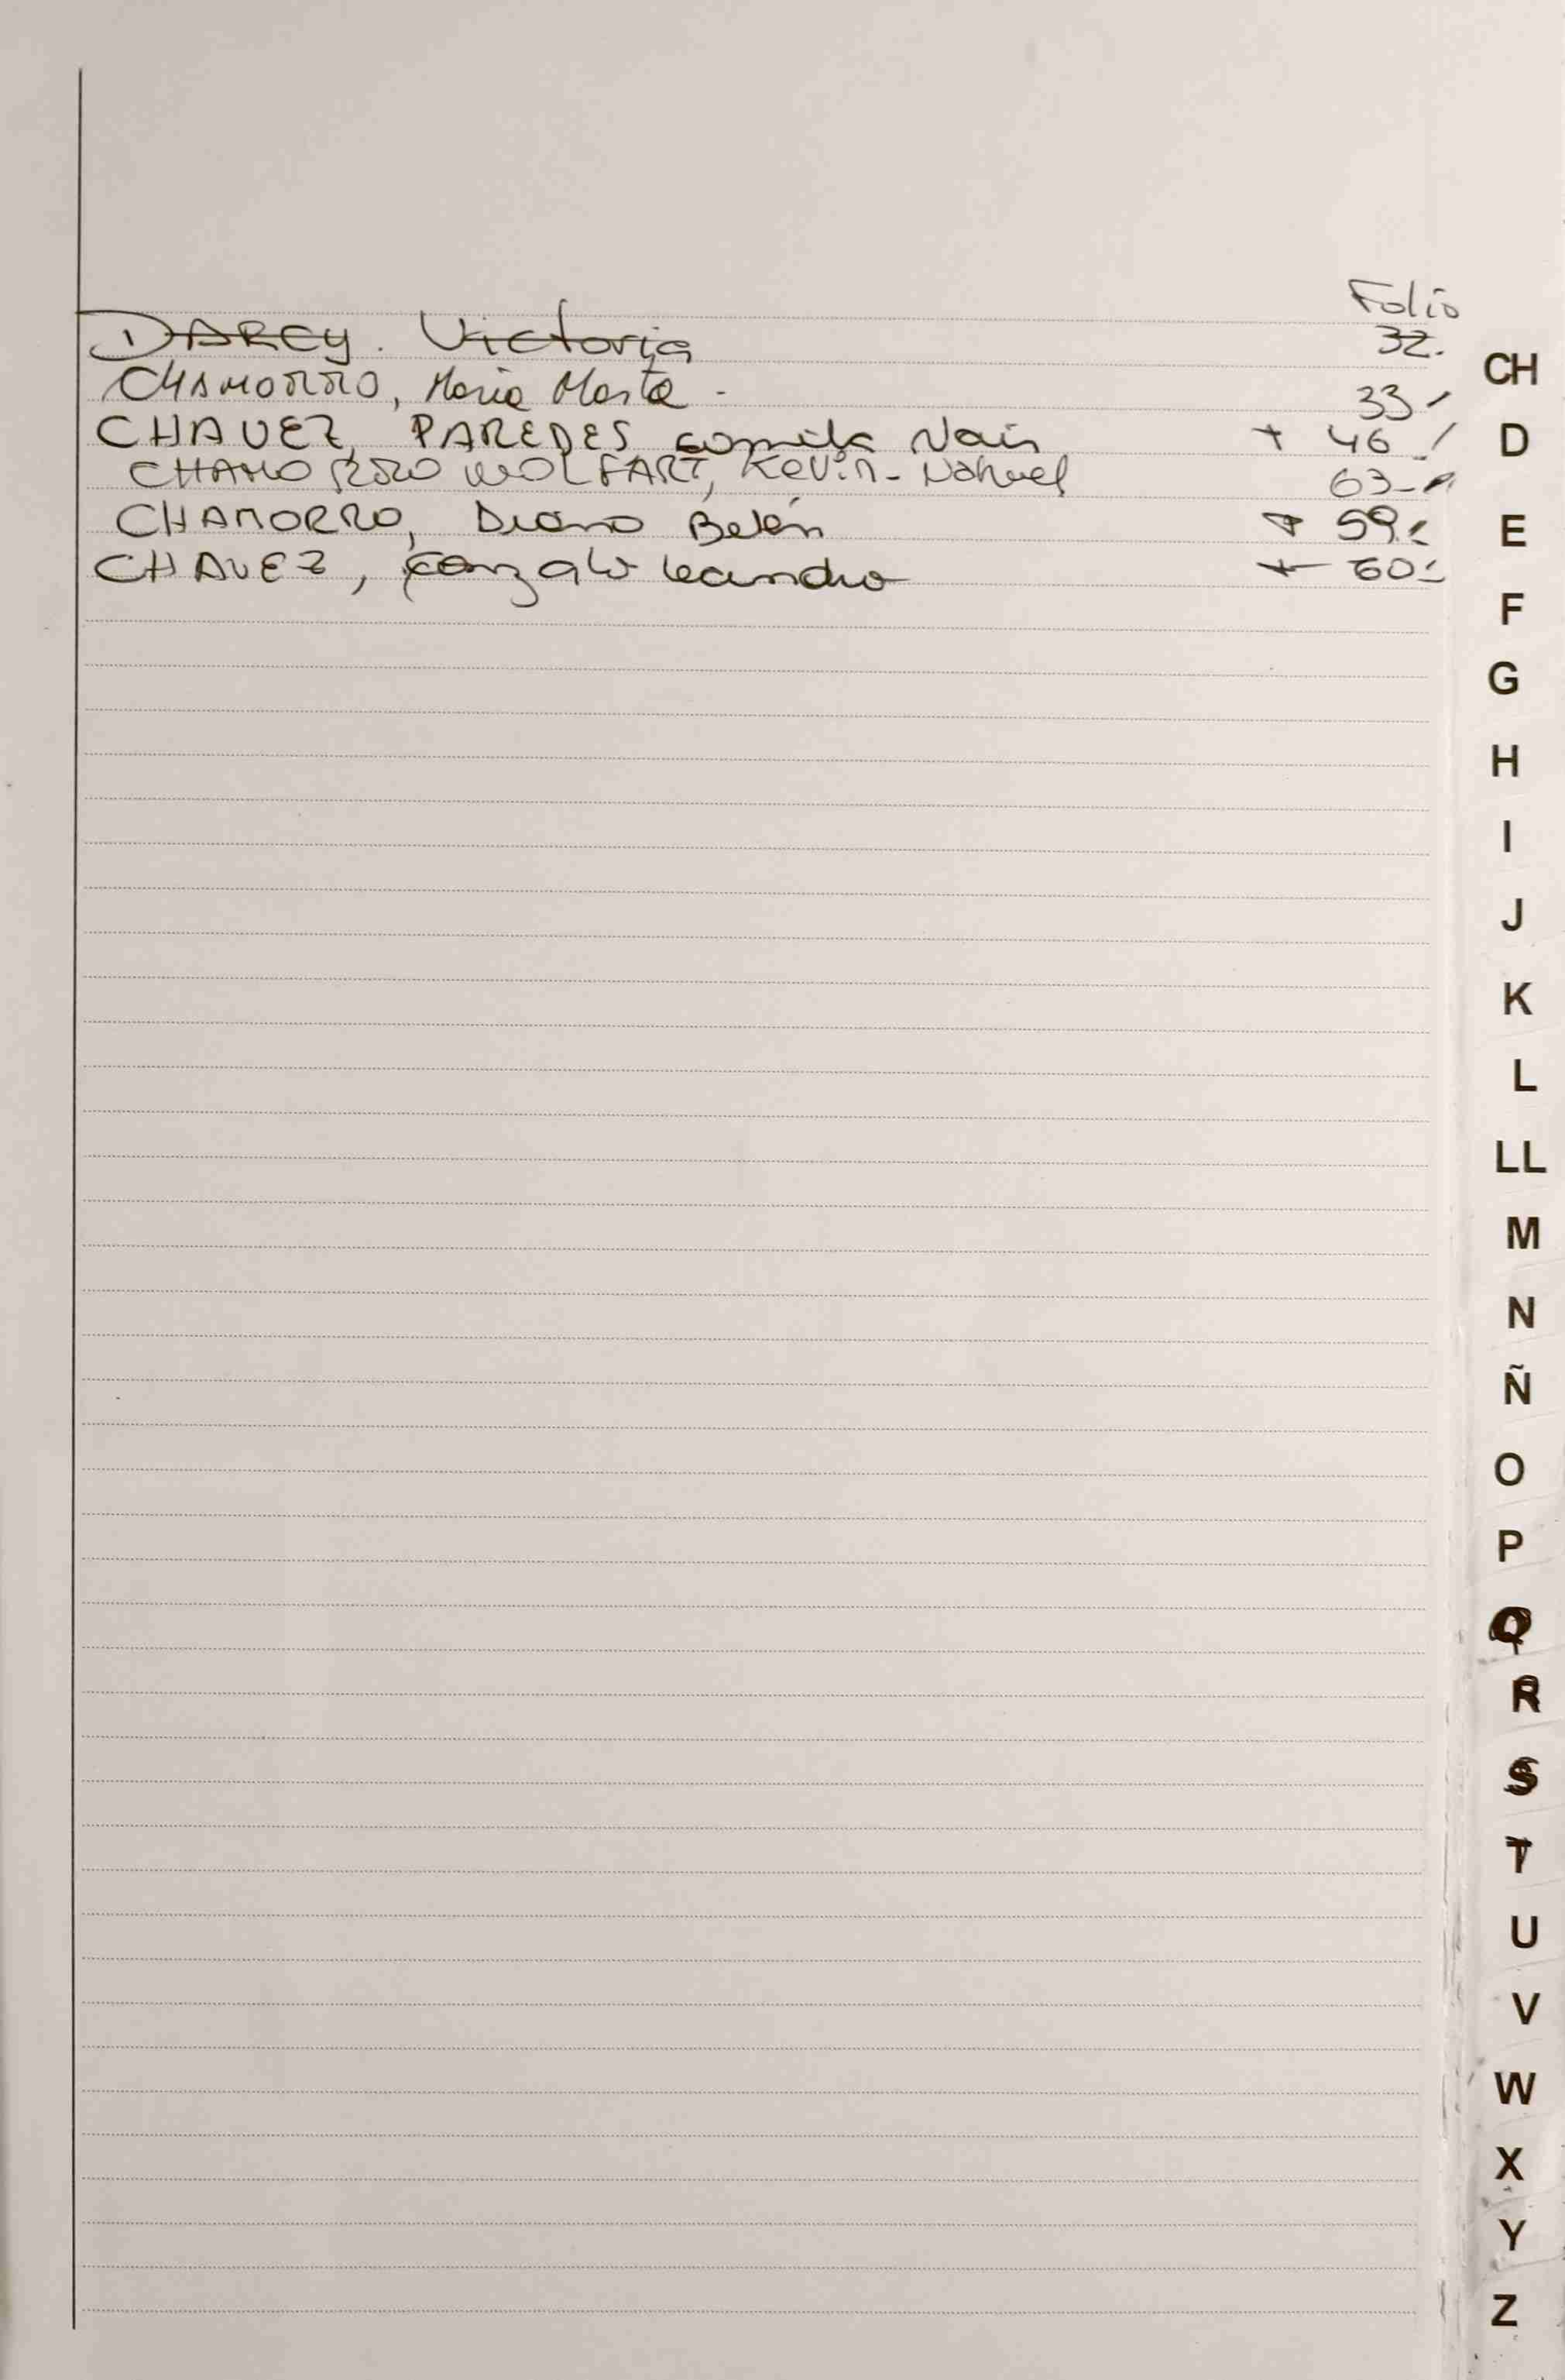 Folio
DARCY. Victoria 32.
CHAMORRO, Maria Marta - 33-
CHAVEZ PAREDES camila Nair + 46 /
CHAMORRO WOLFART, Kevin-Nahuel 63-
CHAMORRO, Diana Belén + 59.-
CHAVEZ, Gonzalo leandro + 60-
CH
D
E
F
G
H
I
J
K
L
LL
M
N
Ñ
O
P
Q
R
S
T
U
V
W
X
Y
Z